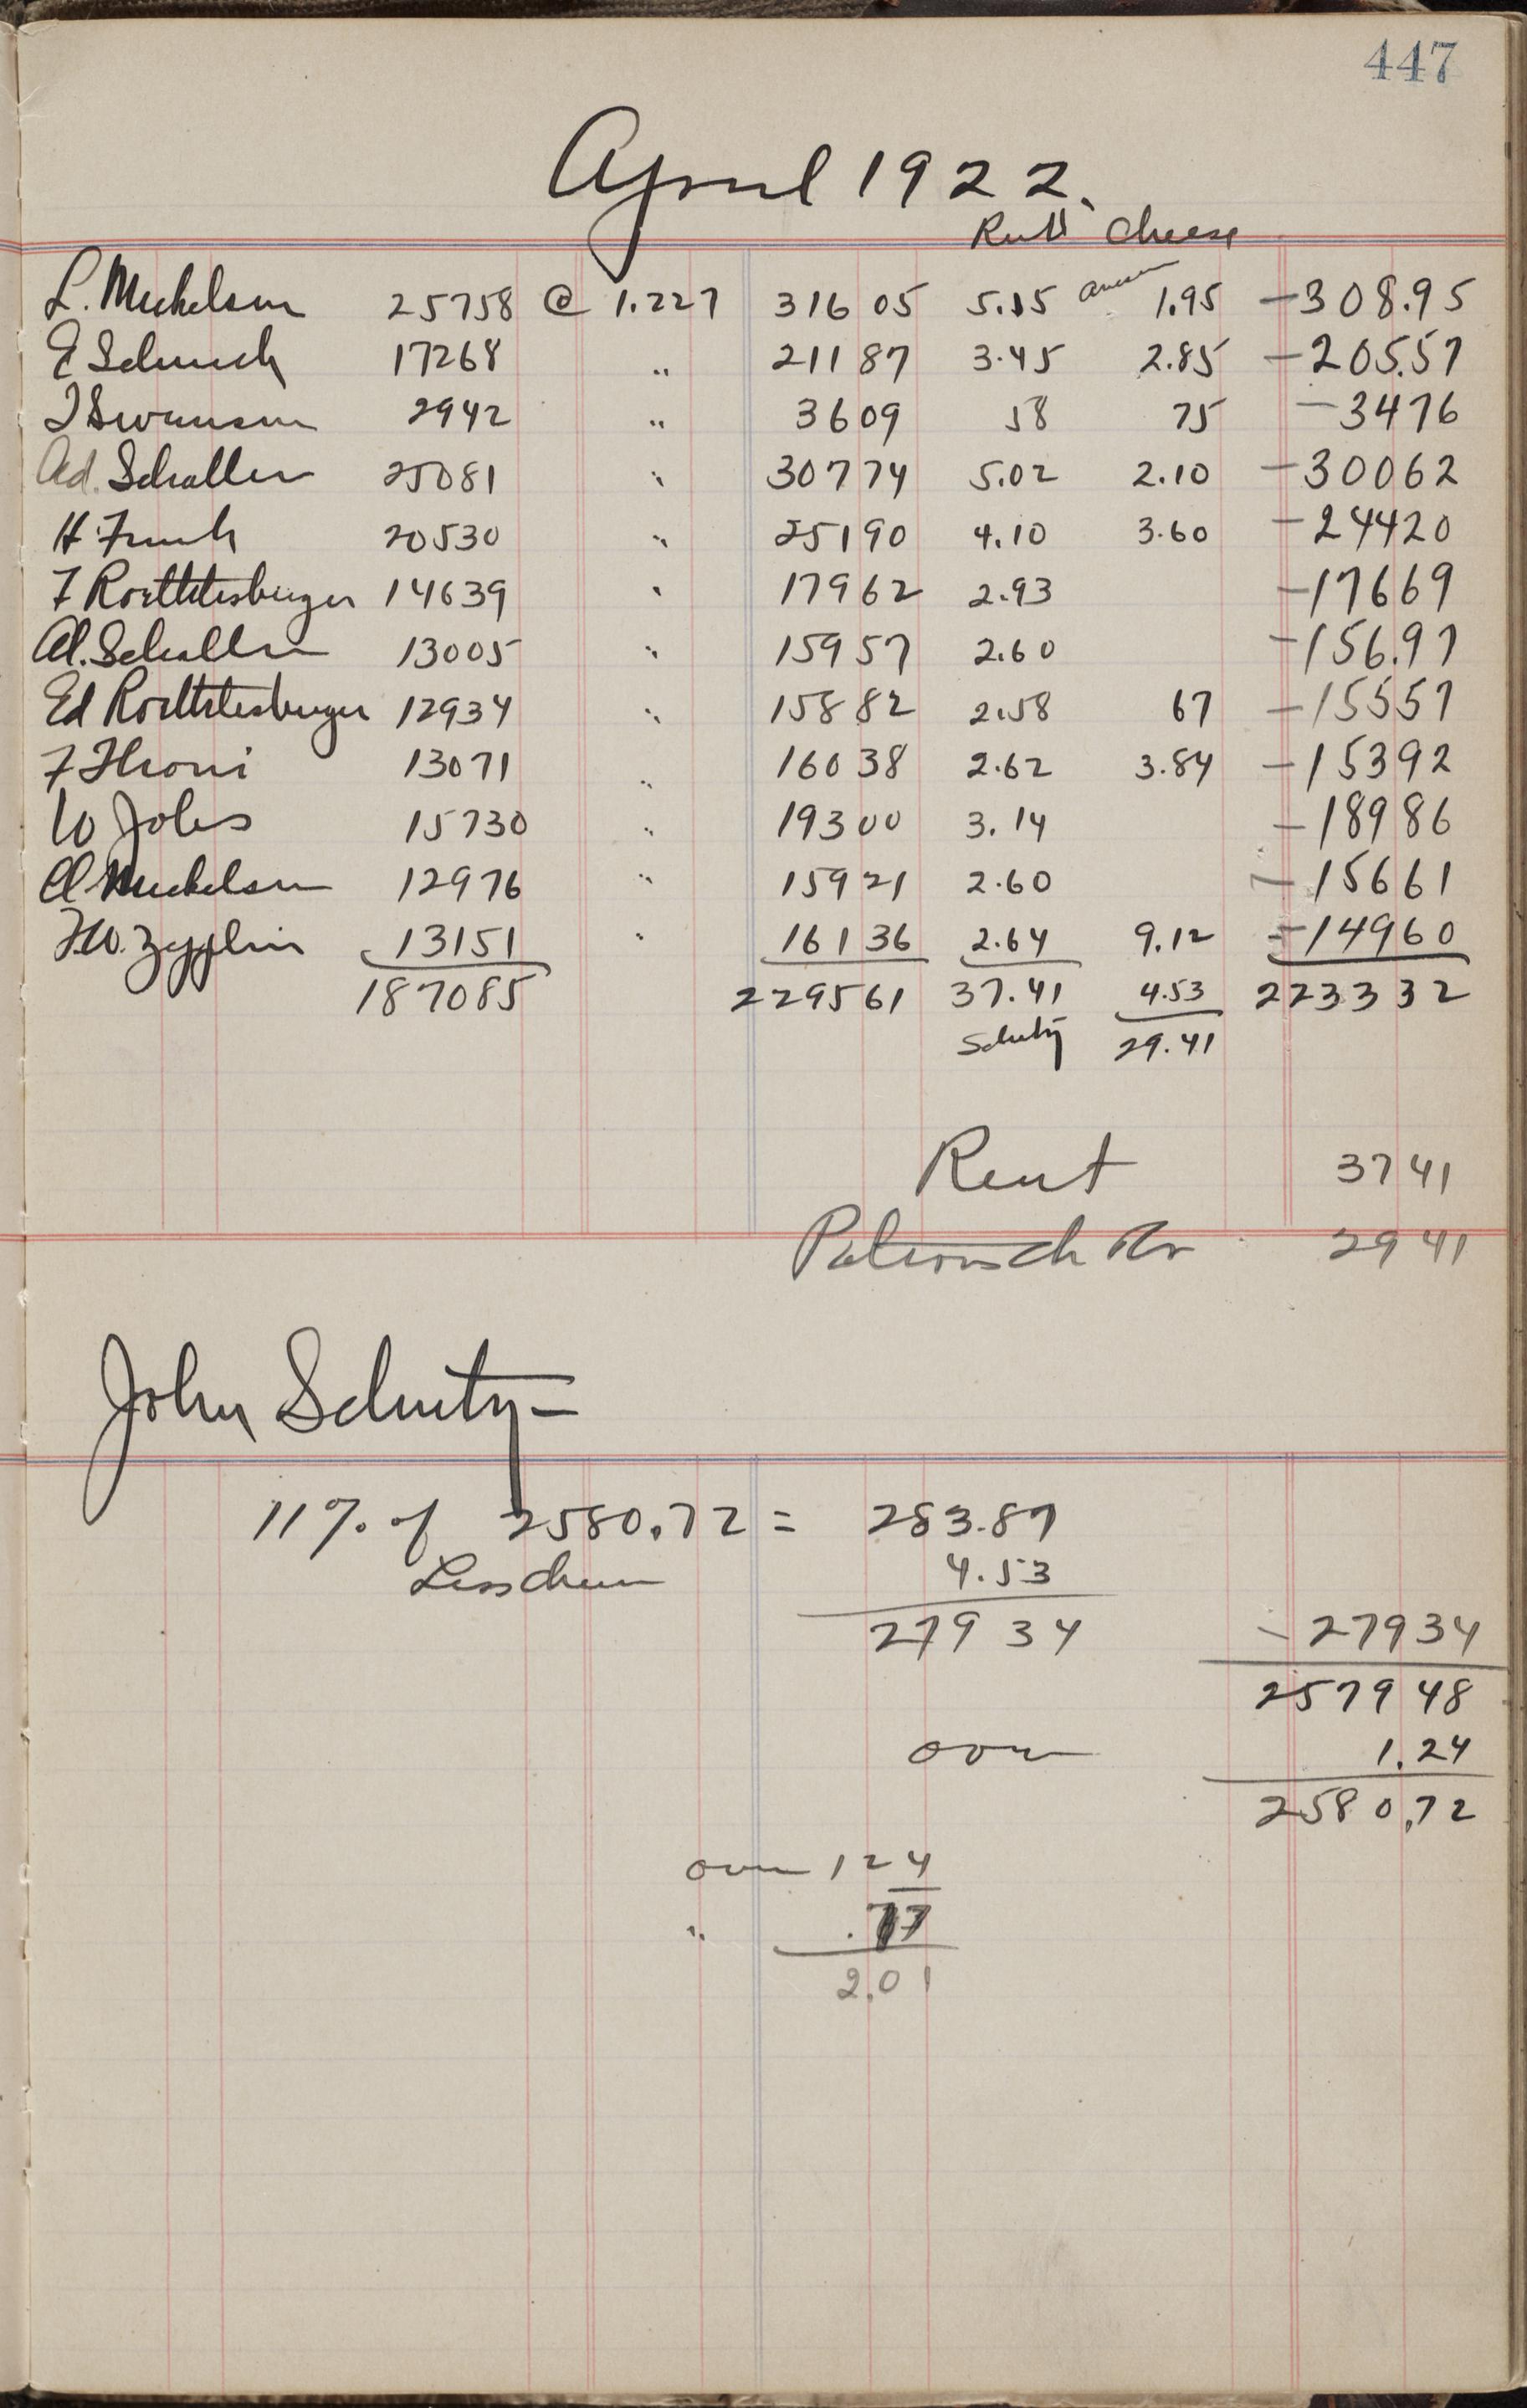 447
April 1922.
Rent Cheese
L. Mickelson 25758 @ 1.227 316 05 5.15 1.95 - 308.95
E Schuch 17268 " 211 87 3.45 2.85 - 205.57
Swanson 2942 " 36 09 58 75 - 34 76
Ad. Schaller 25081 " 307 74 5.02 2.10 - 300 62
H. Funk 20530 " 251 90 4.10 3.60 - 244 20
F Roethlesberger 14639 " 179 62 2.93 - 176 69
Al. Schaller 13005 " 159 57 2.60 - 156.97
Ed Roethlesberger 12934 " 158 82 2.58 67 - 155 57
F 13071 " 160 38 2.62 3.84 - 153 92
W Jobes 15730 " 193 00 3.14 - 189 86
Al Mickelson 12976 " 159 21 2.60 - 156 61
F.W. Zypplin 13151 " 161 36 2.64 9.12 - 149 60
187085 2295 61 37.41 4.53 2233 32
Schutz 29.41
Rent 37 41
Patrons ch 29 41
John Schutz -
11% of 2580.72 = 283.87
Less cheese 4.53
279 34 - 279 34
2579 48
over 1.24
2580.72
over 1 24
" .77
2.01